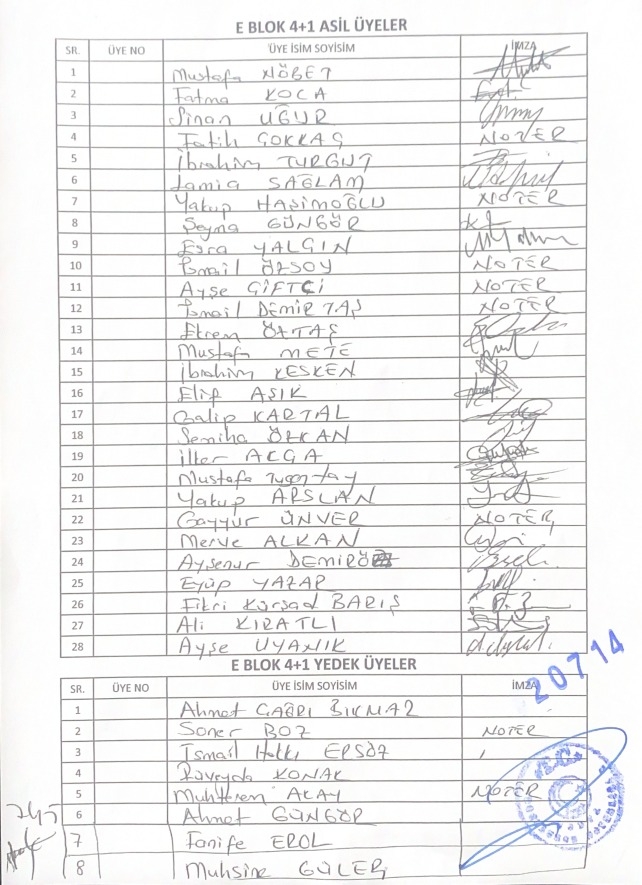 E BLOK 4+1 ASİL ÜYELER
SR. ÜYE NO ÜYE İSİM SOYİSİM İMZA
1 Mustafa NÖBET
2 Fatma KOCA
3 Sinan UĞUR
4 Fatih GÖKKAŞ NOTER
5 İbrahim TURGUT
6 Lamia SAĞLAM
7 Yakup HAŞİMOĞLU NOTER
8 Şeyma GÜNGÖR
9 Esra YALÇIN
10 İsmail ÖZSOY NOTER
11 Ayşe ÇİFTCİ NOTER
12 İsmail DEMİRTAŞ NOTER
13 Ekrem ÖZTAŞ
14 Mustafa METE
15 İbrahim KESKEN
16 Elif AŞIK
17 Galip KARTAL
18 Semiha ÖZKAN
19 İlter AÇGA
20 Mustafa
21 Yakup ARSLAN
22 Gayyur ÜNVER NOTER
23 Merve ALKAN
24 Ayşenur
25 Eyüp YAZAR
26 Fikri Kürşad BARIŞ
27 Ali KIRATLI
28 Ayşe UYANIK
E BLOK 4+1 YEDEK ÜYELER
20714
SR. ÜYE NO ÜYE İSİM SOYİSİM İMZA
1 Ahmet ÇAĞRI BIKMAZ
2 Soner BOZ NOTER
3 İsmail Hakkı ERSÖZ
4 Rüveyda KONAK
5 Muhterem AKAY NOTER
6 Ahmet GÜNGÖR
7 Fanife EROL
8 Muhsine GÜLER